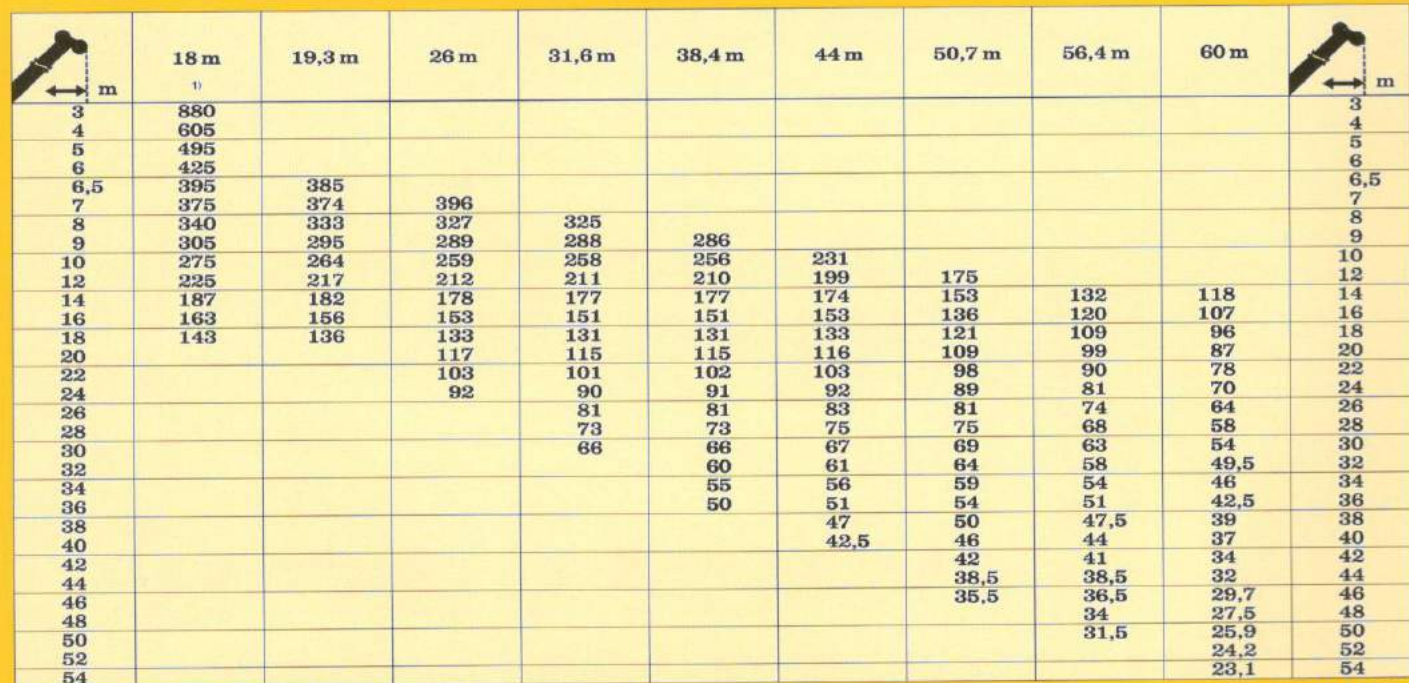 m 18 m 19,3 m 26 m 31,6 m 38,4 m 44 m 50,7 m 56,4 m 60 m m
1)
3 880 3
4 605 4
5 495 5
6 425 6
6,5 395 385 6,5
7 375 374 396 7
8 340 333 327 325 8
9 305 295 289 288 286 9
10 275 264 259 258 256 231 10
12 225 217 212 211 210 199 175 12
14 187 182 178 177 177 174 153 132 118 14
16 163 156 153 151 151 153 136 120 107 16
18 143 136 133 131 131 133 121 109 96 18
20 117 115 115 116 109 99 87 20
22 103 101 102 103 98 90 78 22
24 92 90 91 92 89 81 70 24
26 81 81 83 81 74 64 26
28 73 73 75 75 68 58 28
30 66 66 67 69 63 54 30
32 60 61 64 58 49,5 32
34 55 56 59 54 46 34
36 50 51 54 51 42,5 36
38 47 50 47,5 39 38
40 42,5 46 44 37 40
42 42 41 34 42
44 38,5 38,5 32 44
46 35,5 36,5 29,7 46
48 34 27,5 48
50 31,5 25,9 50
52 24,2 52
54 23,1 54